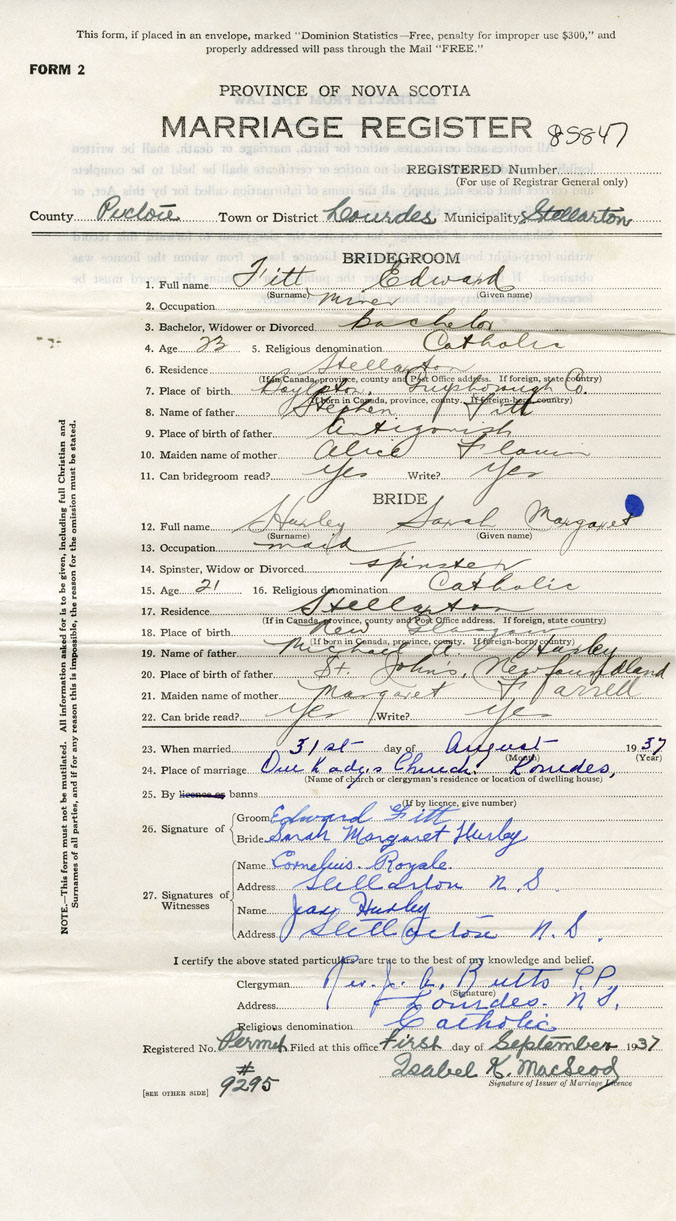 This form, if placed in an envelope, marked "Dominion Statistics—Free, penalty for improper use $300," and
properly addressed will pass through the Mail "FREE."
FORM 2
PROVINCE OF NOVA SCOTIA
MARRIAGE REGISTER 85847
REGISTERED Number
(For use of Registrar General only)
County Pictou Town or District Lourdes Municipality Stellarton
BRIDEGROOM
1. Full name Fitt Edward
(Surname) (Given name)
2. Occupation miner
3. Bachelor, Widower or Divorced bachelor
4. Age 23 5. Religious denomination Catholic
6. Residence Stellarton
(If in Canada, province, county and Post Office address. If foreign, state country)
7. Place of birth Boylston, Guysborough Co.
(If born in Canada, province, county. If foreign-born country)
8. Name of father Stephen Fitt
9. Place of birth of father Antigonish
10. Maiden name of mother Alice
11. Can bridegroom read? Yes Write? Yes
BRIDE
12. Full name Hurley Sarah Margaret
(Surname) (Given name)
13. Occupation maid
14. Spinster, Widow or Divorced spinster
15. Age 21 16. Religious denomination Catholic
17. Residence Stellarton
(If in Canada, province, county and Post Office address. If foreign, state country)
18. Place of birth New Glasgow
(If born in Canada, province, county. If foreign-born country)
19. Name of father Michael A. Hurley
20. Place of birth of father St. John's, Newfoundland
21. Maiden name of mother Margaret Farrell
22. Can bride read? Yes Write? Yes
23. When married 31st day of August 1937
(Month) (Year)
24. Place of marriage Our Ladys Church. Lourdes,
(Name of church or clergyman's residence or location of dwelling house)
25. By licence or banns
(If by licence, give number)
26. Signature of
Groom Edward Fitt
Bride Sarah Margaret Hurley
27. Signatures of Witnesses
Name Cornelius Royale
Address Stellarton N.S.
Name Hurley
Address Stellarton N.S.
I certify the above stated particulars are true to the best of my knowledge and belief.
Clergyman Rev. J. A. Butts P.P.
(Signature)
Address Lourdes. N.S.
Religious denomination Catholic
Registered No. Permit Filed at this office First day of September 1937
# 9295
Isabel K. MacLeod
Signature of Issuer of Marriage Licence
[SEE OTHER SIDE]
NOTE.—This form must not be mutilated. All information asked for is to be given, including full Christian and
Surnames of all parties, and if for any reason this is impossible, the reason for the omission must be stated.